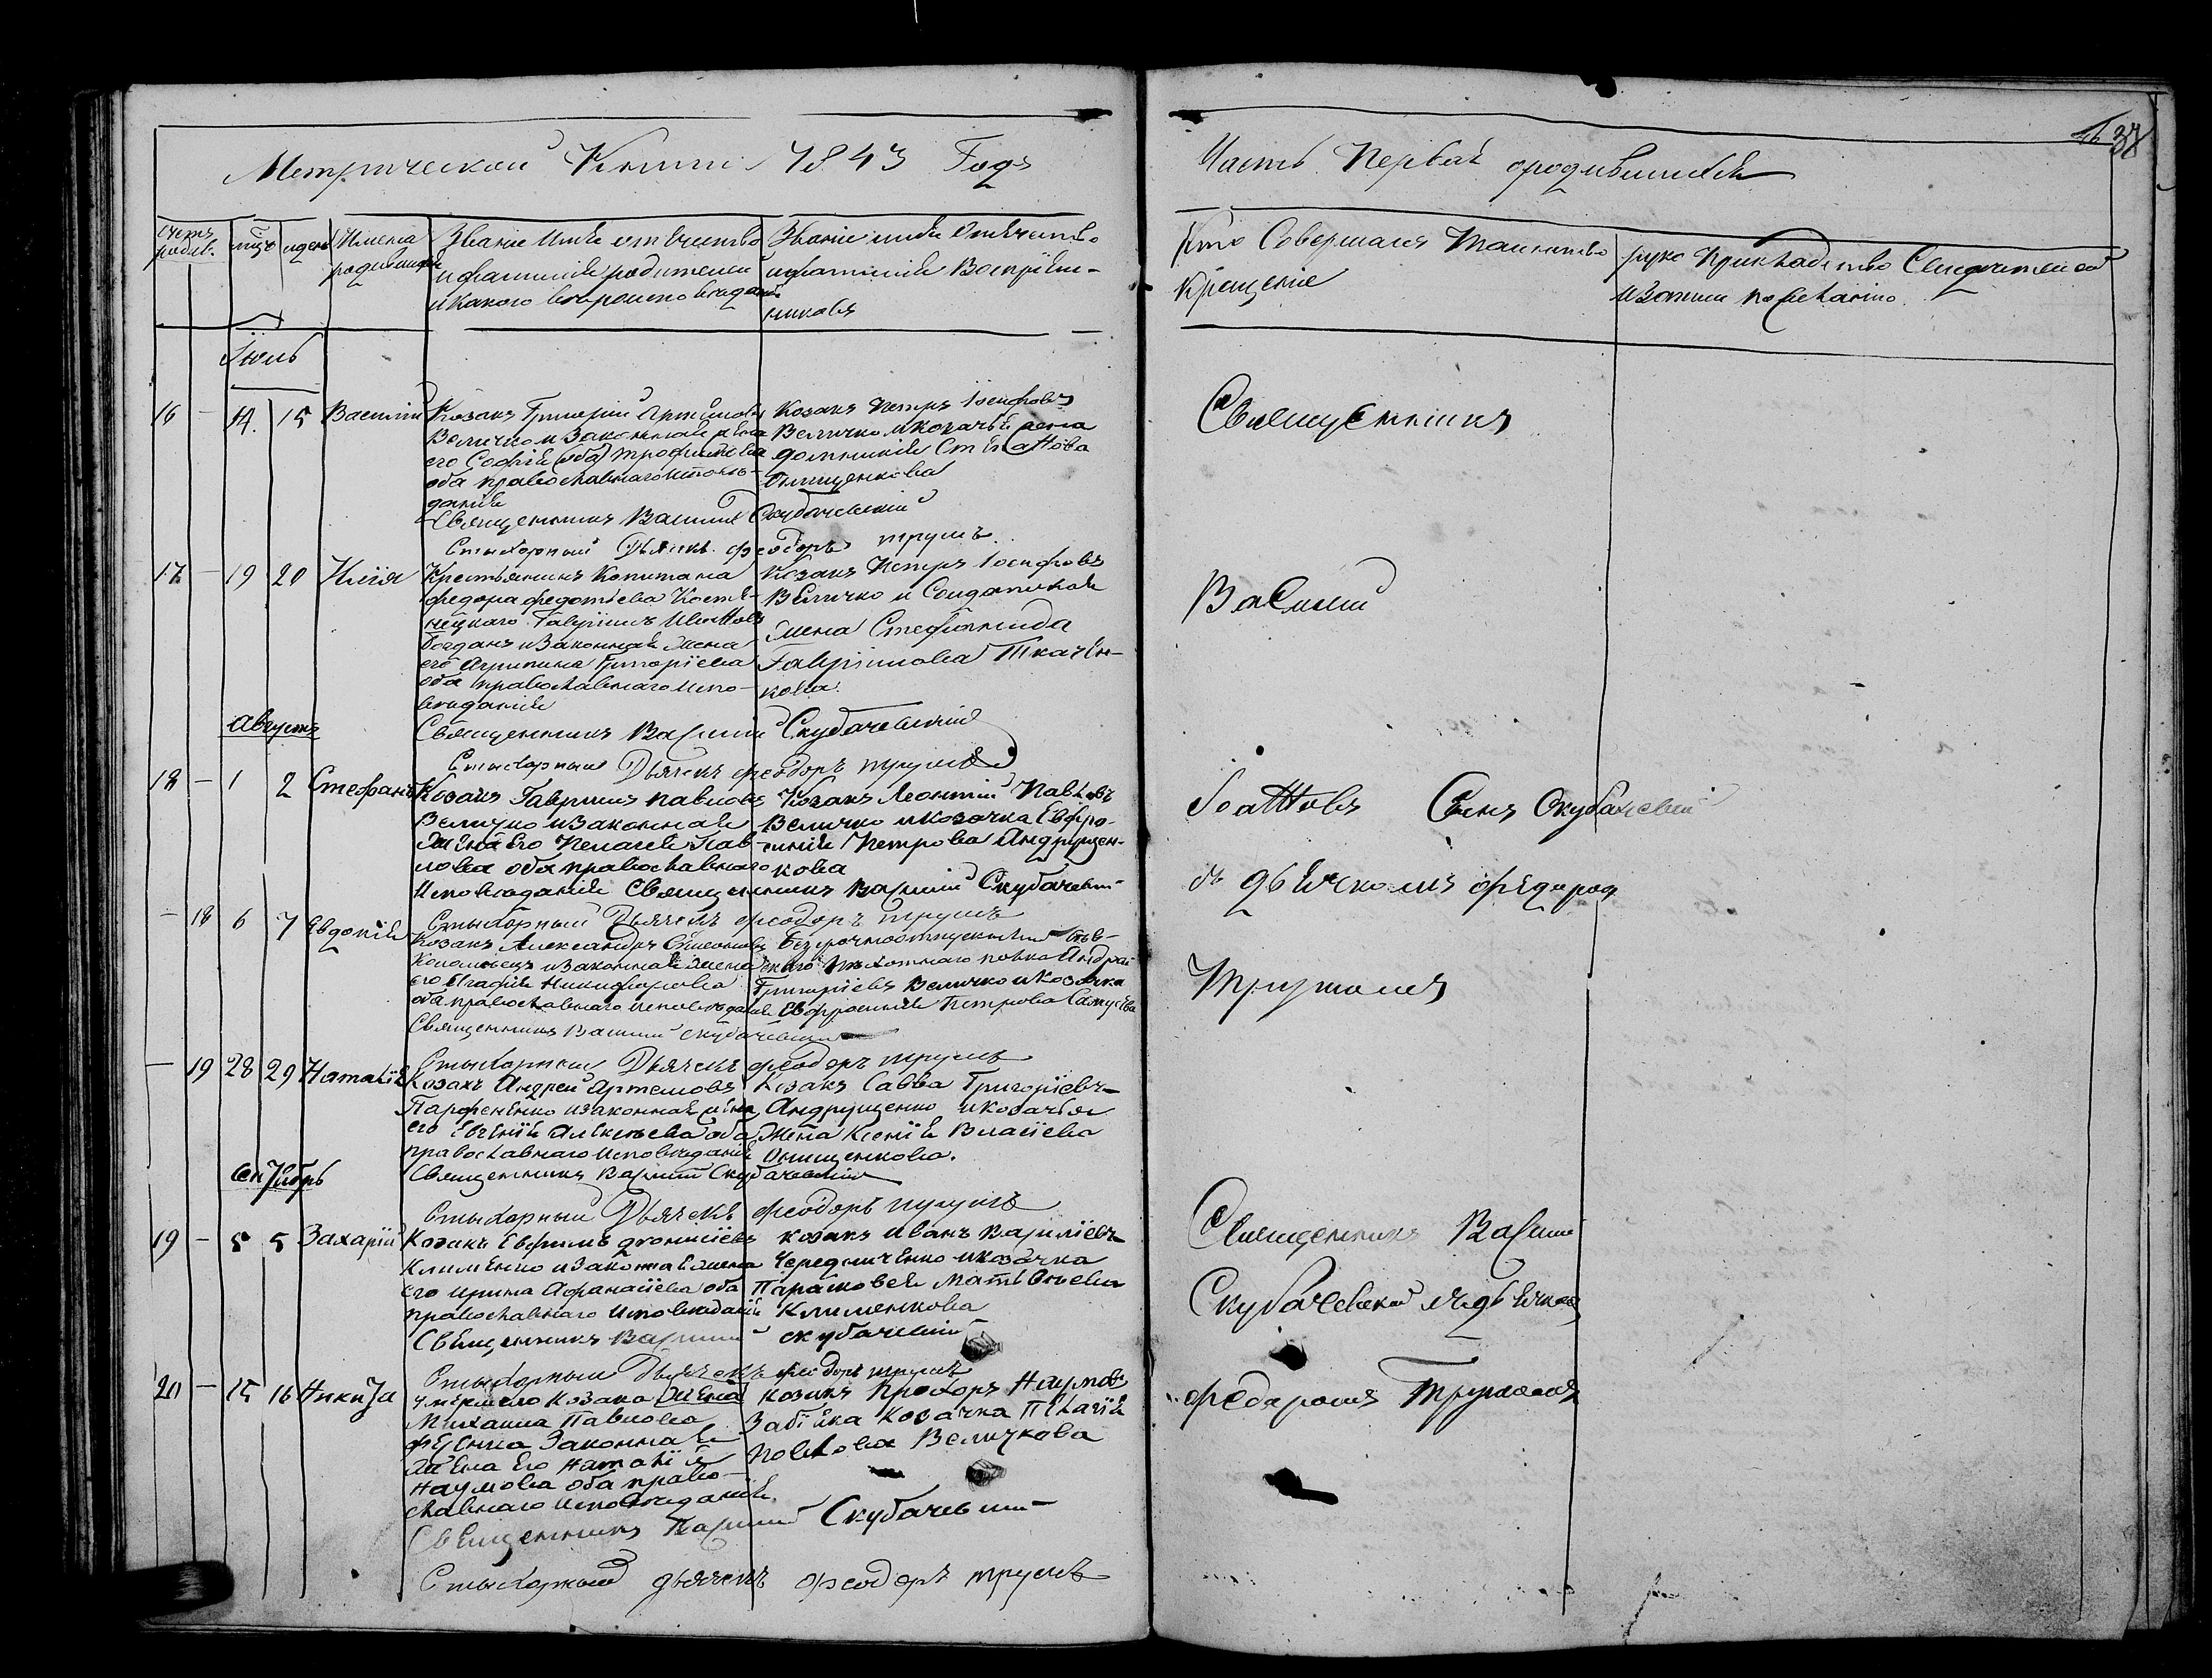 Метрической Книги 1843 Года
счетъ родив. мцъ и день Имена родившихъ
Званіе Имя отечество
и фамилія родителей
и Какого вѣроисповѣданія
Званіе имя Отечество
и фамилія Воспріем-
никовъ
Іюль
16 – 14. 15 Василій
Козакъ Григорій Артемовъ
Величко и Законная жена
его Софія Трофимова
оба православнаго исповѣ-
данія
Козакъ Петръ Іосифовъ
Величко и козачья жена
Онищенкова
Священникъ Василій Скубачевскій
Стихарный Дьячекъ феодоръ трушъ.
17 – 19 20 Илія
Крестьянинъ Капитана
федора федотьева
Гавріилъ
Богданъ и Законная Жена
его Агрипина Григоріева
оба православнаго испо-
вѣданія
Козакъ Петръ Іосифовъ
Величко и Солдатская
Жена Стефанида
Гавріилова Ткачен-
кова.
Священникъ Василій Скубачевскій
Августъ
Стихарный Дьячекъ феодоръ трушъ
18 – 1 2 Стефанъ
Козакъ Гавріилъ павловъ
Величко и Законная
Жена Его Пелагея Пав-
лова оба православнаго
Исповѣданія
Козакъ Леонтій Павловъ
Величко и козачка Евфро-
синія Петрова Андрущен-
кова
Священникъ Василій Скубачевскій
Стихарный Дьячекъ феодоръ трушъ
– 18 6 7 Евдокія
Козакъ Александръ Симеоновъ
Коломіецъ и Законная Жена
его Агафія Никифорова
оба православнаго исповѣданія
Безсрочноотпускный
пѣхотнаго полка Андрей
Григоріевъ Величко и Козачка
Евфросинія Петрова
Священникъ Василій Скубачевскій
Стихарный Дьячекъ феодоръ трушъ
– 19 28 29 Наталія
Козакъ Андрей Артемовъ
Парфененко и законная жена
его Евгенія Алексѣева оба
православнаго Исповѣданія
Козакъ Савва Григоріевъ
Андрущенко и козачья
Жена Ксенія Власіева
Онищенкова.
Священникъ Василій Скубачевскій
Сентябрь
Стихарный Дьячекъ феодоръ трушъ
19 – 5 5 Захарій
Козакъ Евфимъ Діонисіевъ
Клименко и Законная Жена
его Ирина Афанасіева оба
православнаго Исповѣданія
козакъ Иванъ Василіевъ
Чередниченко и козачка
Парасковея Матвѣева
Клименкова
Священникъ Василій скубачевскій
Стихарный Дьячекъ феодоръ трушъ
20 – 15 16 Никита
Умершаго Козака Жена
Михаила Павлова
Законная
Жена Его Наталія
Наумова оба право-
славнаго Исповѣданія.
козакъ Прохоръ Наумовъ
Козачка Пелагія
Павлова Величкова
Священникъ Василій Скубачевскій
Стихарный дьячекъ феодоръ трушъ
37
Часть Первая о родившихся
Кто Совершалъ Таинство
Крещенія
рукоприкладство Свидетелей
Записи по желанію.
Священникъ
Василій
Іоанновъ Сынъ Скубачевскій
съ дьячкомъ федоромъ
Трушомъ
Священникъ Василій
Скубачевскій съ дьячкомъ
федоромъ Трушомъ